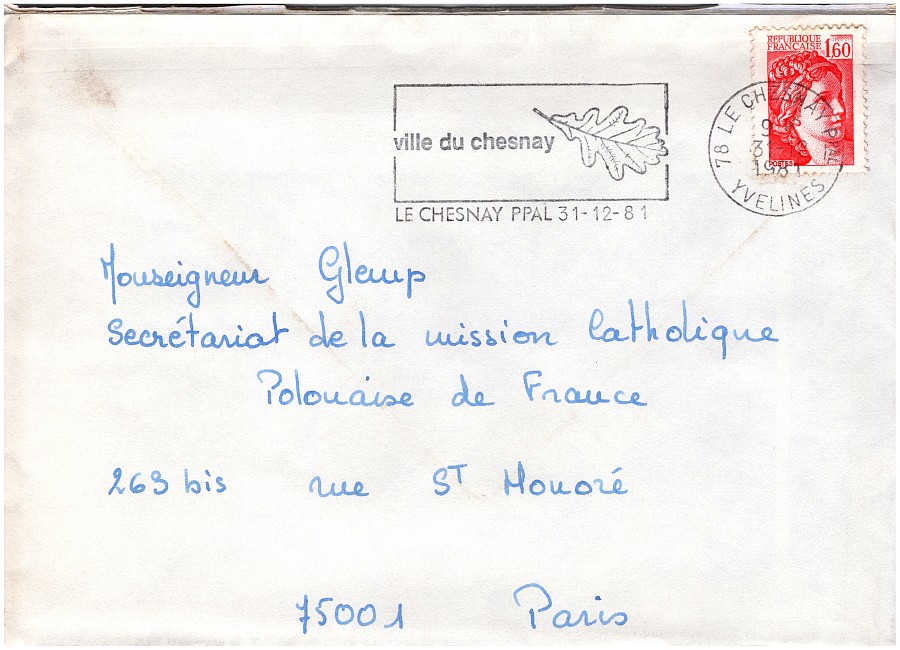 REPUBLIQUE
FRANÇAISE 1,60
POSTES
ville du chesnay
LE CHESNAY PPAL 31-12-81
78 LE CHESNAY PPAL
1981
YVELINES
Monseigneur Glemp
Secrétariat de la mission Catholique
Polonaise de France
263 bis rue ST Honoré
75001 Paris